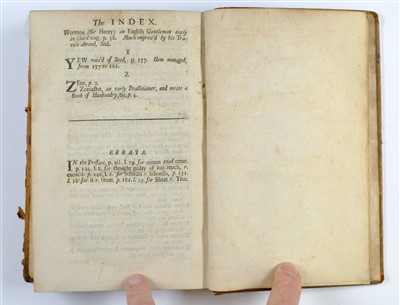 The INDEX.
Wotton (Sir Henry) an English Gentleman early
in Gard'ning, p. 56. Much improv'd by his Tra-
vels abroad, ibid.
Y
YEW rais'd of Seed, p. 157. How managed,
from 157 to 161.
Z
ZEno, p. 2.
Zoroaster, an early Practitioner, and wrote a
Book of Husbandry, &c. p. 4.
ERRATA.
IN the Preface, p. iii. l. 23. for certain read
p. 124. l. 6. for thought guilty of too much, r.
l. 6. for r. p. 151.
for it r. them. p. 181. l. 13. for Short r. Tree.